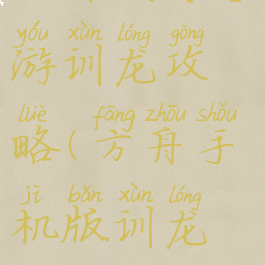 yóu xùn lóng gōng
游训龙攻
lüè fāng zhōu shǒu
略(方舟手
jī bǎn xùn lóng
机版训龙